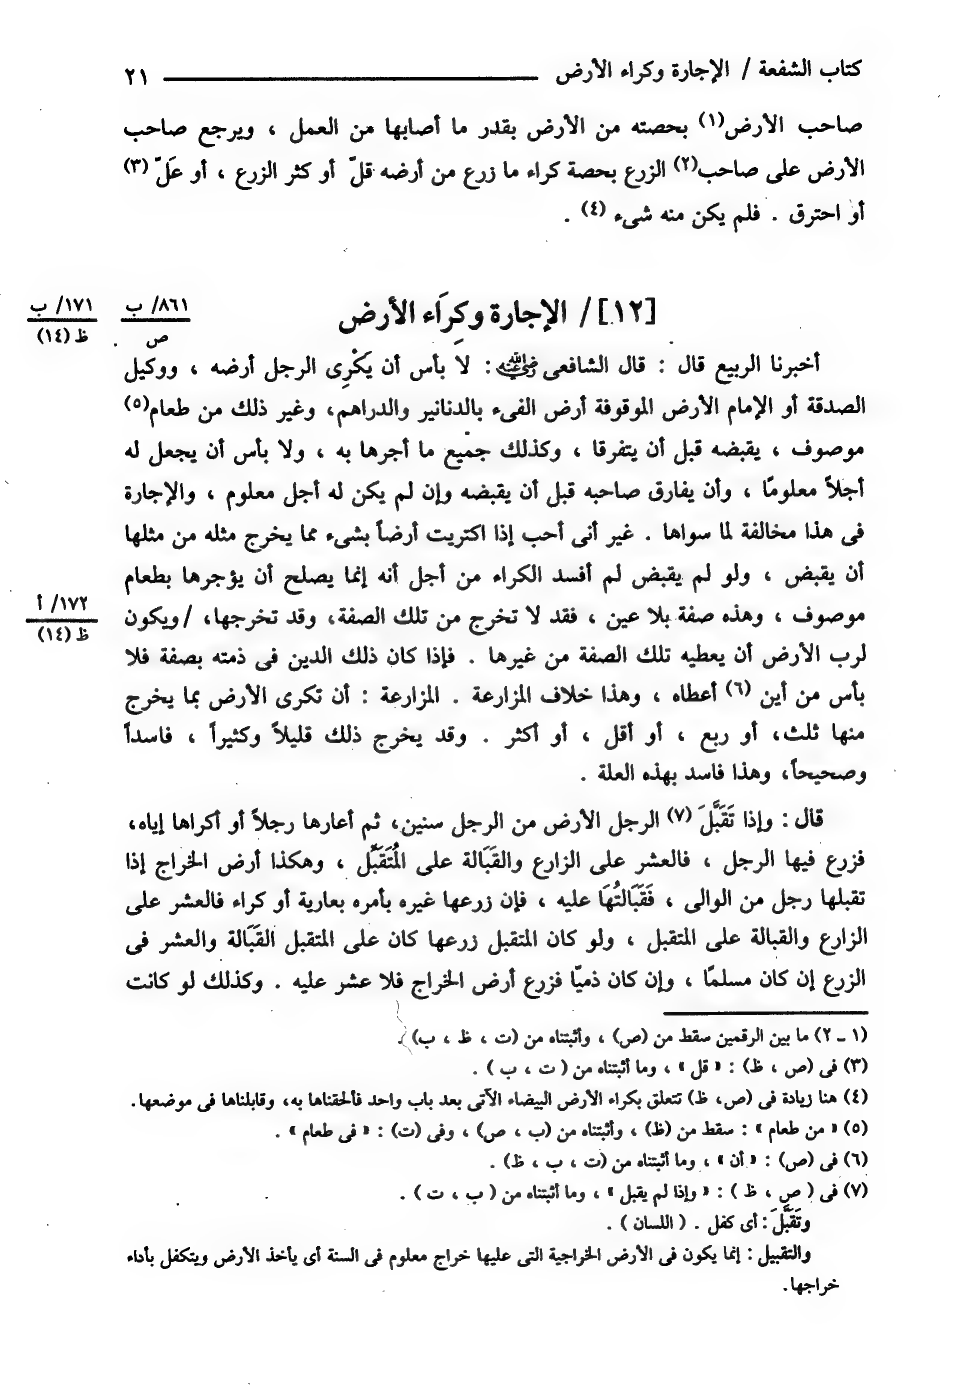 كتاب الشفعة / الإجارة وكراء الأرض ـــــــــــــــــــــ ٢١
صاحب الأرض(١) بحصته من الأرض بقدر ما أصابها من العمل ، ويرجع صاحب
الأرض على صاحب(٢) الزرع بحصة كراء ما زرع من أرضه قلّ أو كثر الزرع ، أو عَلّ (٣)
أو احترق . فلم يكن منه شىء (٤) .
[١٢] / الإجارة وكِرَاء الأرض
٨٦١/ ب
ص
١٧١/ ب
ظ (١٤)
أخبرنا الربيع قال : قال الشافعى رضي الله عنه : لا بأس أن يَكْرِى الرجل أرضه ، ووكيل
الصدقة أو الإمام الأرض الموقوفة أرض الفىء بالدنانير والدراهم، وغير ذلك من طعام(٥)
موصوف ، يقبضه قبل أن يتفرقا ، وكذلك جميع ما أجرها به ، ولا بأس أن يجعل له
أجلاً معلومًا ، وأن يفارق صاحبه قبل أن يقبضه وإن لم يكن له أجل معلوم ، والإجارة
فى هذا مخالفة لما سواها . غير أنى أحب إذا اكتريت أرضاً بشىء مما يخرج مثله من مثلها
أن يقبض ، ولو لم يقبض لم أفسد الكراء من أجل أنه إنما يصلح أن يؤجرها بطعام
موصوف ، وهذه صفة بلا عين ، فقد لا تخرج من تلك الصفة، وقد تخرجها، / ويكون
١٧٢/ أ
ظ (١٤)
لرب الأرض أن يعطيه تلك الصفة من غيرها . فإذا كان ذلك الدين فى ذمته بصفة فلا
بأس من أين (٦) أعطاه ، وهذا خلاف المزارعة . المزارعة : أن تكرى الأرض بما يخرج
منها ثلث، أو ربع ، أو أقل ، أو أكثر . وقد يخرج ذلك قليلاً وكثيراً ، فاسداً
وصحيحاً، وهذا فاسد بهذه العلة .
قال : وإذا تَقَبَّلَ (٧) الرجل الأرض من الرجل سنين، ثم أعارها رجلاً أو أكراها إياه،
فزرع فيها الرجل ، فالعشر على الزارع والقَبَالة على المُتَقَبِّل ، وهكذا أرض الخراج إذا
تقبلها رجل من الوالى ، فَقَبَالتُهَا عليه ، فإن زرعها غيره بأمره بعارية أو كراء فالعشر على
الزارع والقبالة على المتقبل ، ولو كان المتقبل زرعها كان على المتقبل القَبَالة والعشر فى
الزرع إن كان مسلمًا ، وإن كان ذميًا فزرع أرض الخراج فلا عشر عليه . وكذلك لو كانت
(١ ـ ٢) ما بين الرقمين سقط من (ص) ، وأثبتناه من (ت ، ظ ، ب) .
(٣) فى (ص ، ظ) : « قل » ، وما أثبتناه من ( ت ، ب ) .
(٤) هنا زيادة فى (ص، ظ) تتعلق بكراء الأرض البيضاء الآتى بعد باب واحد فألحقناها به، وقابلناها فى موضعها.
(٥) « من طعام » : سقط من (ظ) ، وأثبتناه من (ب ، ص) ، وفى (ت) : « فى طعام » .
(٦) فى (ص) : « أن » ، وما أثبتناه من (ت ، ب ، ظ) .
(٧) فى ( ص ، ظ ) : « وإذا لم يقبل » ، وما أثبتناه من ( ب ، ت ) .
وتَقَبَّلَ : أى كفل . ( اللسان ) .
والتقبيل : إنما يكون فى الأرض الخراجية التى عليها خراج معلوم فى السنة أى يأخذ الأرض ويتكفل بأداء
خراجها.